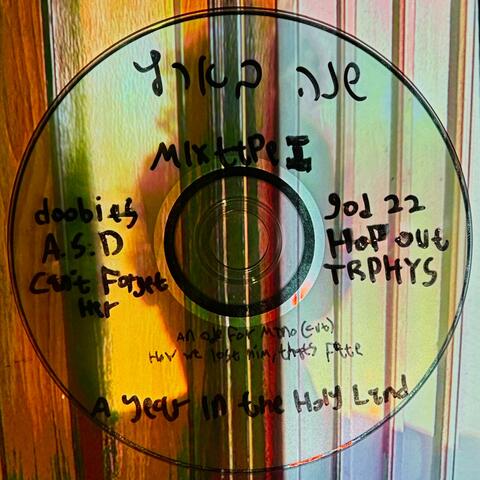 שנה בארץ
MIxttPe I
doobies
A.S.D
Can't Forget
Her
god 22
HoP out
TRPHYS
An ode for Mmo (cut)
How we lost him, that's Fate
A Year In the Holy Land